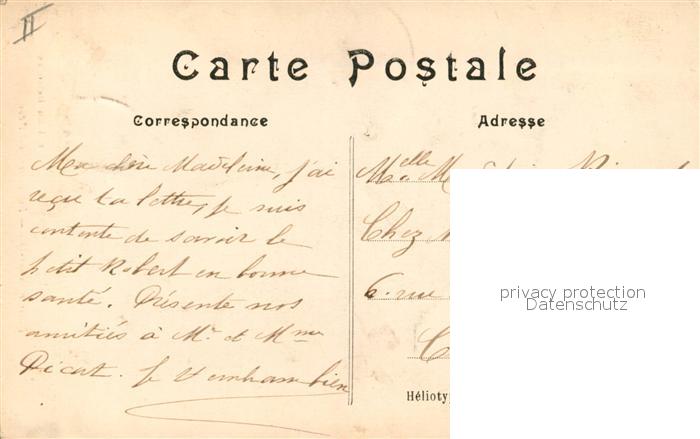 II
Carte Postale
Correspondance
Adresse
Ma chère Madeleine, j'ai
reçu ta lettre, je suis
contente de savoir le
petit Robert en bonne
santé. Présente nos
amitiés à Mr. et Mme
Picart. Je t'embrasse bien
Melle M
Chez
6. rue
C
Hélioty
privacy protection
Datenschutz